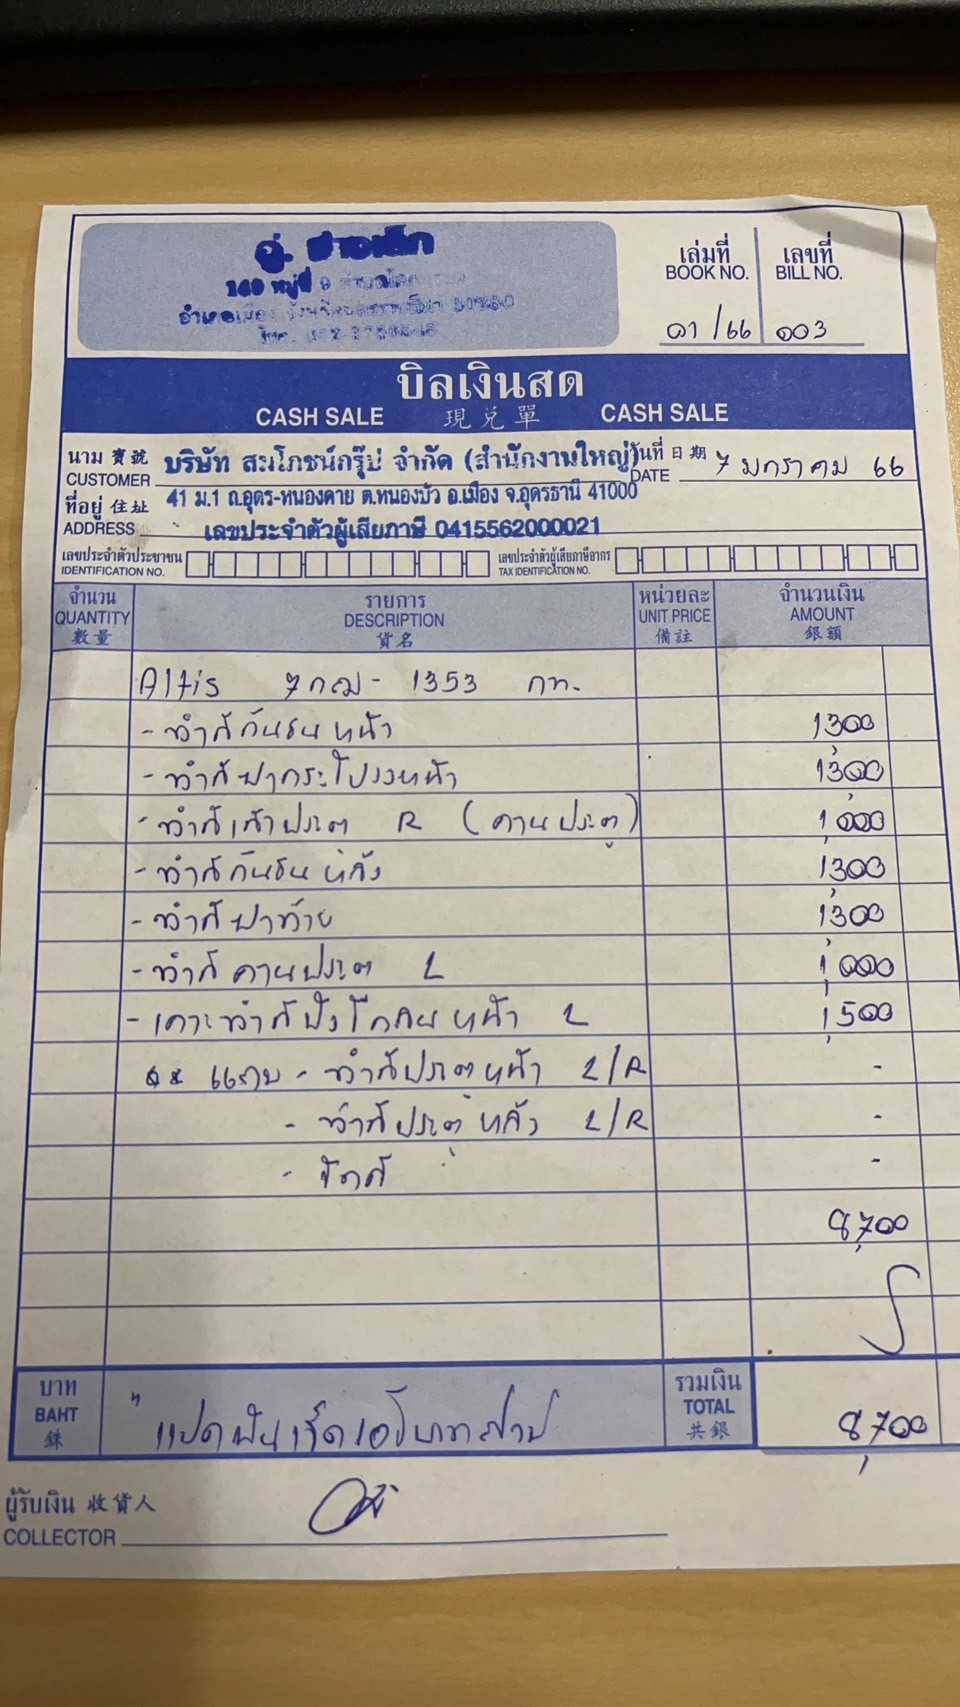 อู่. ช่างเล็ก
169 หมู่ที่ 9
เล่มที่ เลขที่
BOOK NO. BILL NO.
01/66 003
บิลเงินสด
CASH SALE 現兌單 CASH SALE
นาม 寶號 บริษัท สมโภชน์กรุ๊ป จำกัด (สำนักงานใหญ่) วันที่ 日期
CUSTOMER DATE 7 มกราคม 66
ที่อยู่ 住址 41 ม.1 ถ.อุดร-หนองคาย ต.หนองบัว อ.เมือง จ.อุดรธานี 41000
ADDRESS เลขประจำตัวผู้เสียภาษี 0415562000021
เลขประจำตัวประชาชน เลขประจำตัวผู้เสียภาษีอากร
IDENTIFICATION NO. TAX IDENTIFICATION NO.
จำนวน รายการ หน่วยละ จำนวนเงิน
QUANTITY DESCRIPTION UNIT PRICE AMOUNT
數量 貨名 備註 銀額
Altis 7กฌ - 1353 กท.
- ทำสีกันชนหน้า 1,300
- ทำสีฝากระโปรงหน้า 1,300
- ทำสีเสาประตู R (คานประตู) 1,000
- ทำสีกันชนหลัง 1,300
- ทำสีฝาท้าย 1,300
- ทำสีคานประตู L 1,000
- เคาะทำสีบังโคลนหน้า L 1,500
แถม - ทำสีประตูหน้า L/R -
- ทำสีประตูหลัง L/R -
- ขัดสี -
8,700
บาท รวมเงิน
BAHT " แปดพันเจ็ดร้อยบาทถ้วน TOTAL 8,700
銖 共銀
ผู้รับเงิน 收貨人
COLLECTOR